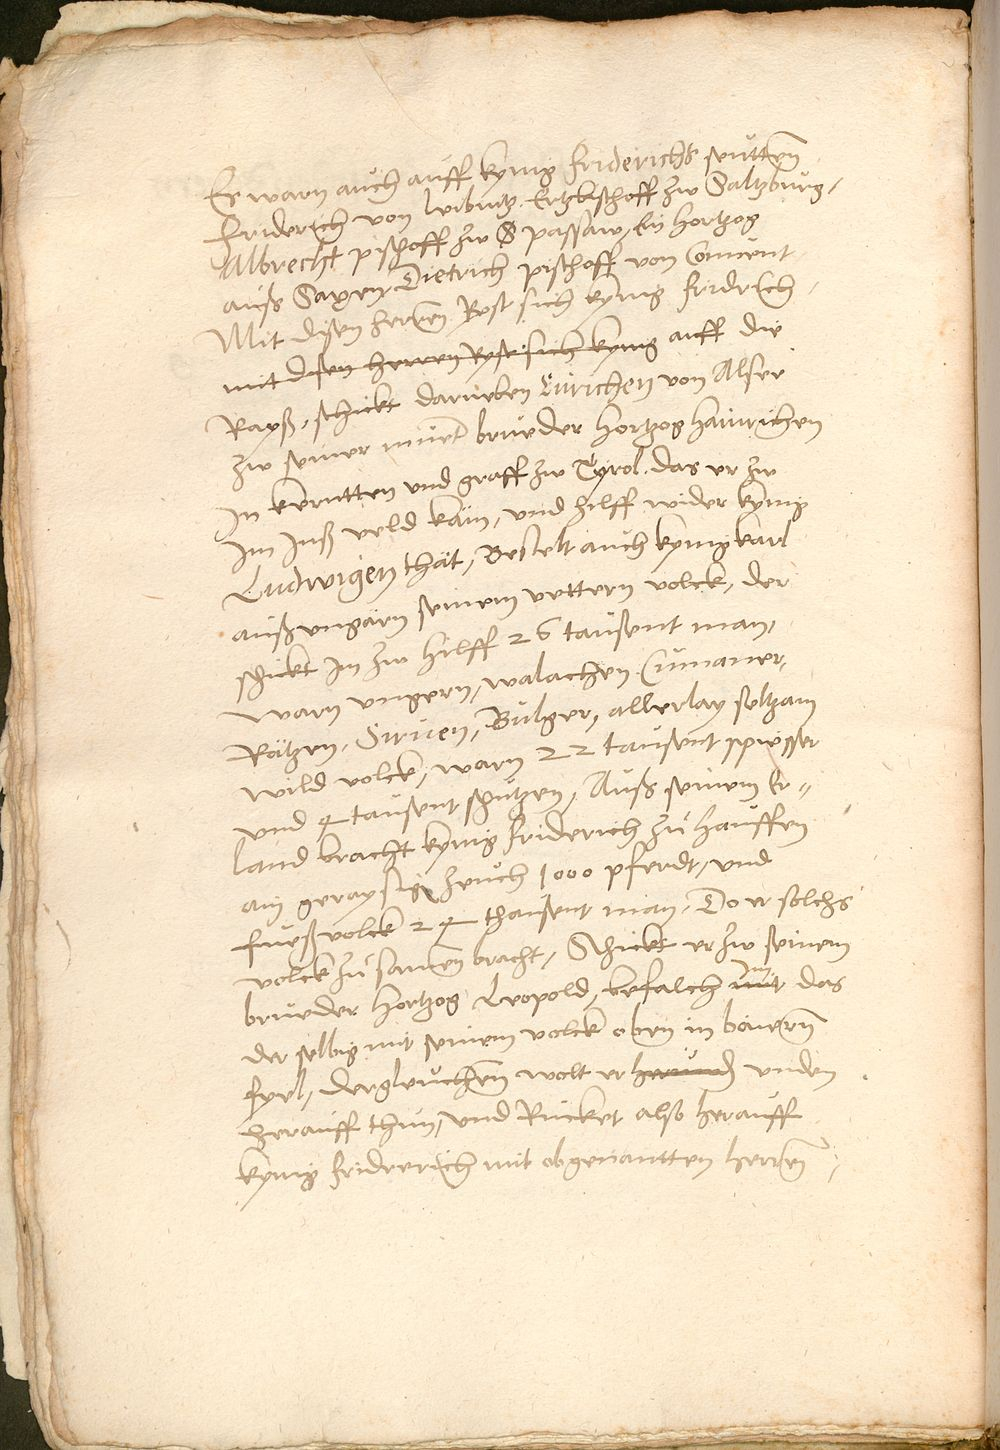 Es warn auch auff kynig Friderichs seutten
Friderich von leibnitz Ertzbischoff zw Saltzburg,
Albrecht pischoff zw S passaw, ein hertzog
auß Saxen, Dietrich pischoff von
Mit disen herren Rest sich kynig fridrich
mit disen herren Ryst sich kynig auff die
Rayß, schickt darneben Ulrichen von Alser
zw seiner muet brueder hertzog hainrichen
In kerntten und graff zw Tyrol. das er zw
Im Inß veld käm, und hilff wider kynig
Ludwigen thät, Bestelt auch kynig karl
auß ungärn seinem vettern volck, der
schickt Im zw hilff 26 tausent man,
warn ungern, walachen Cumaner,
Rätzen, Siruen, Bulger, allerlay seltzam
wild volck, warn 22 tausent spiesser
und 4 tausent schutzen, Auß seinem Er=
land bracht kynig friderich zu hauffen
ain geraysig zeuch 1000 pferdt, und
fueßvolck 24 thausent man. Do er solchs
volck zu samen bracht, Schickt er zw seinem
brueder hertzog Leopold, befalch im das
der selbig mit seinem volck oben in baiern
fyel, dergleuchen wolt er herund unden
herauff thun, und Rucket also herauff
kynig fridrerich mit obgenantten herren,